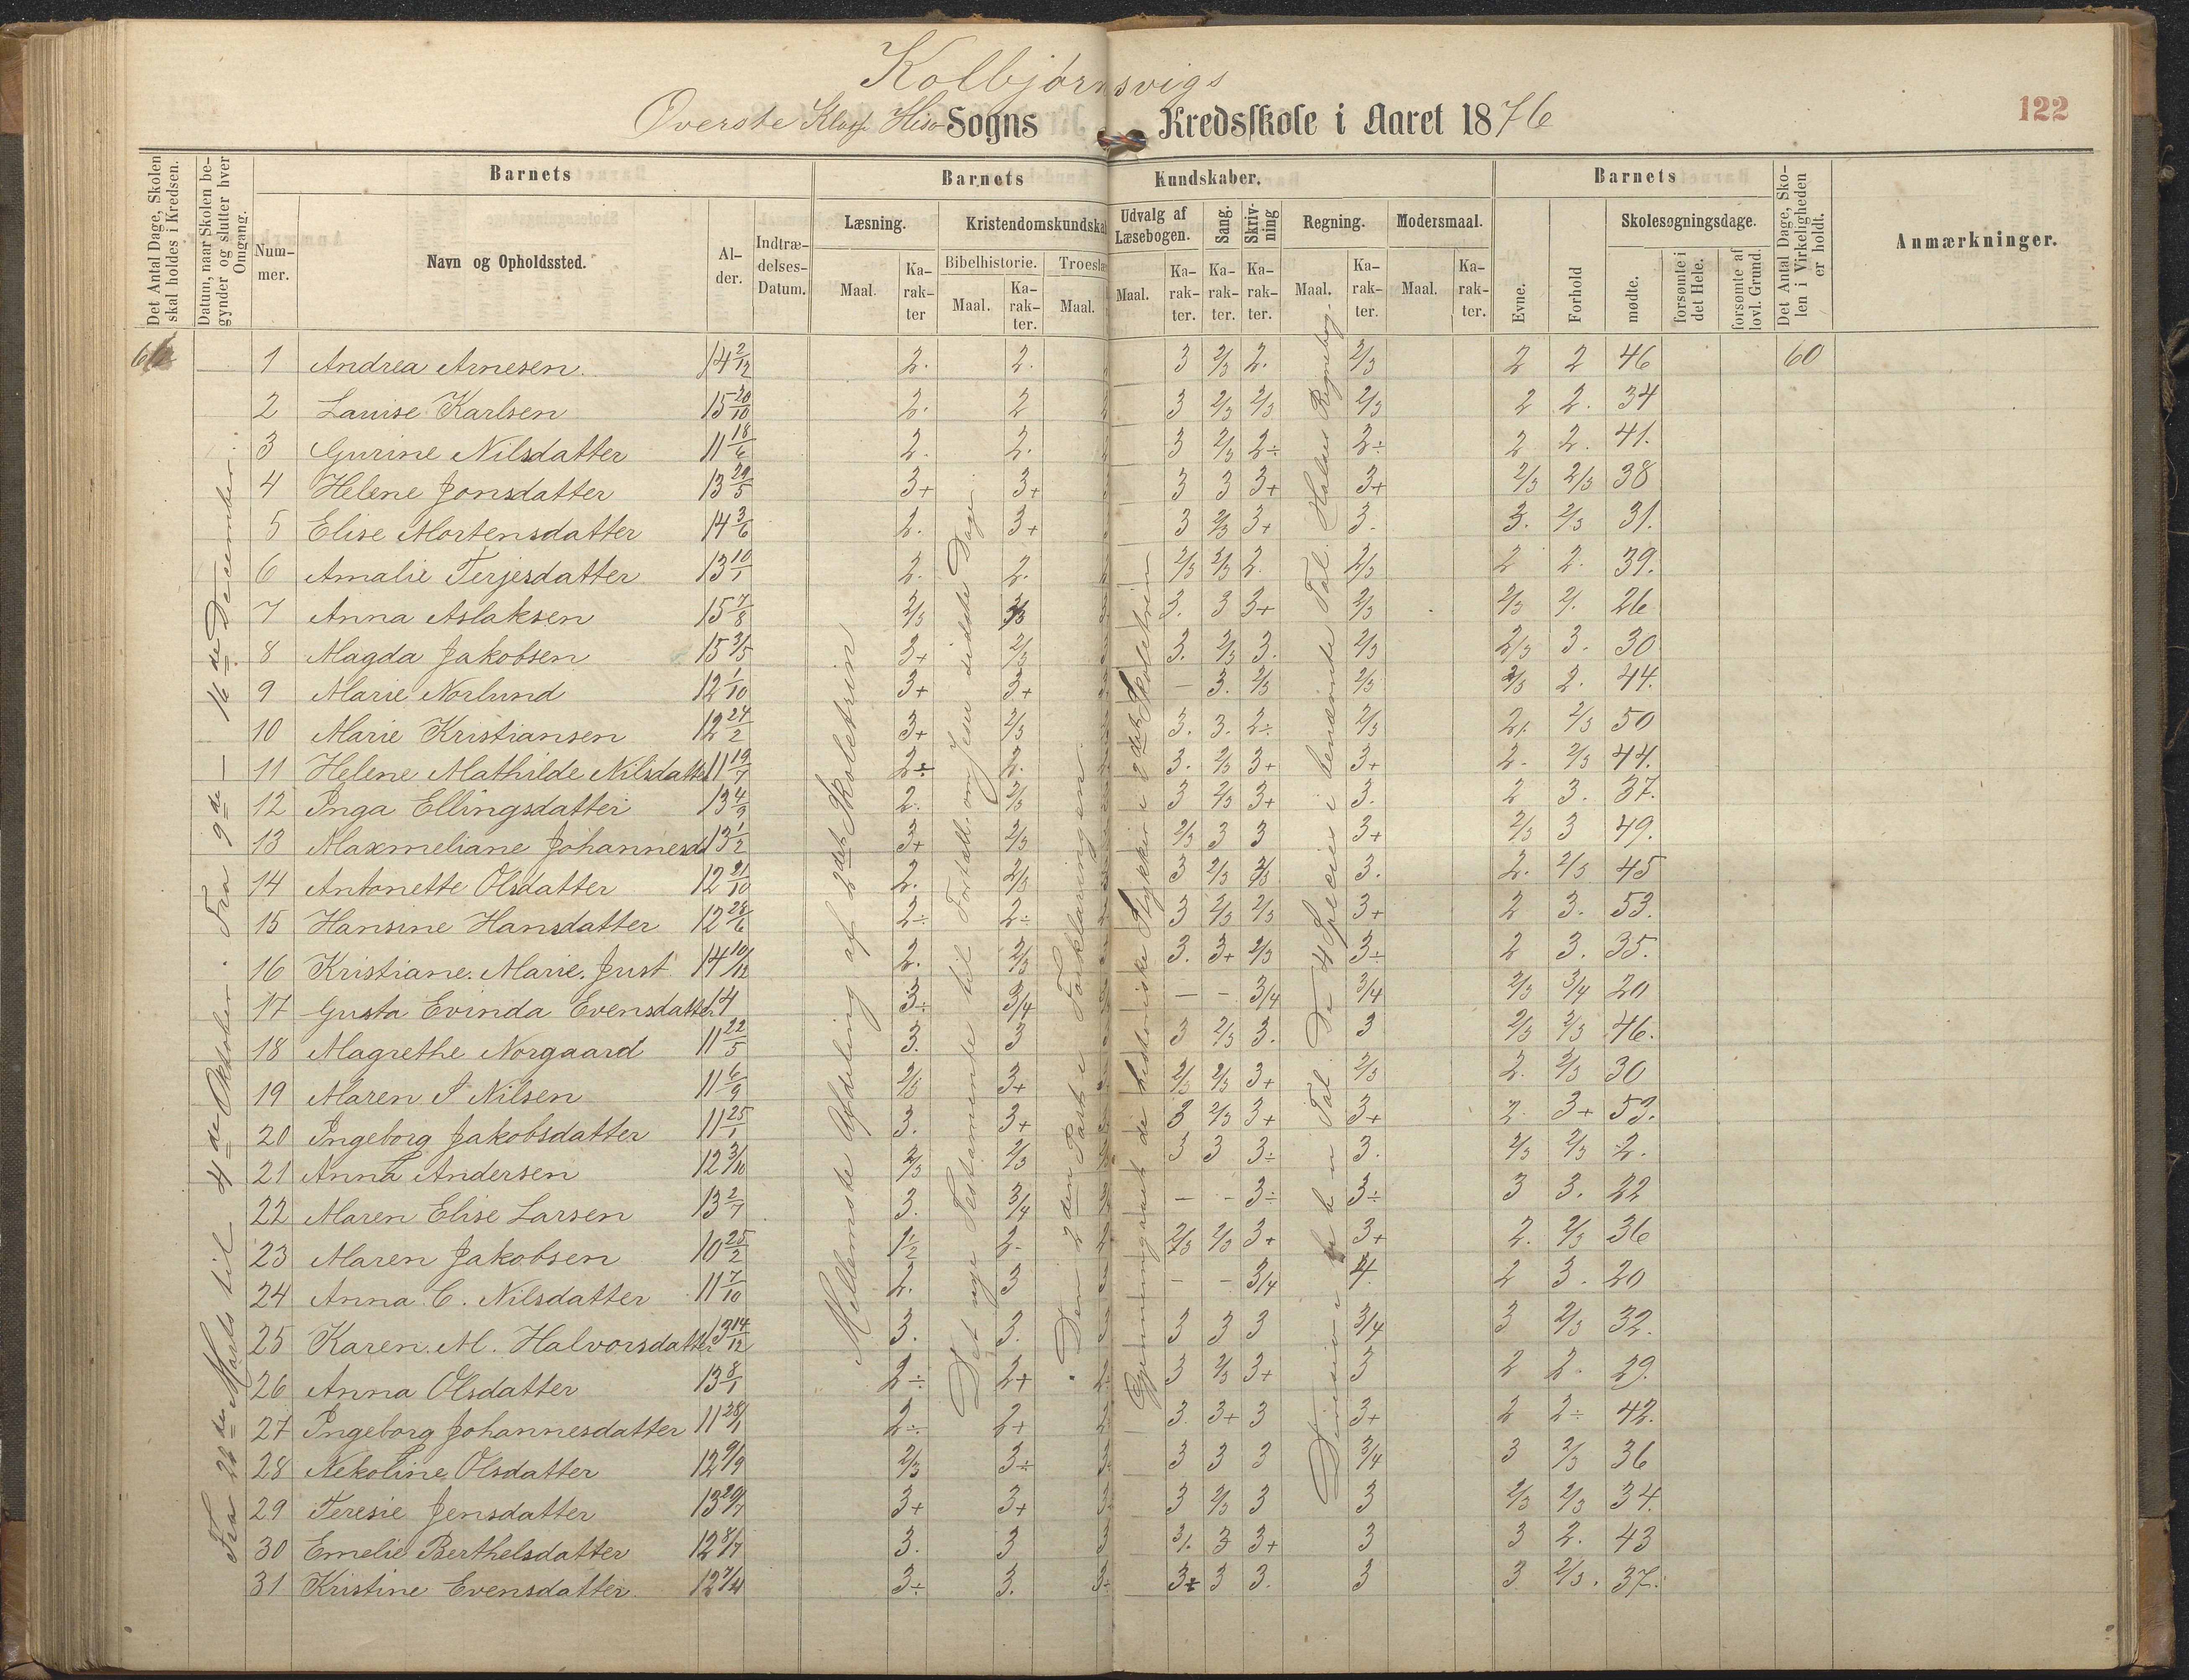 Kolbjørnsvigs
Øverste Klasse Hisø Sogns Kredsskole i Aaret 1876
122
Det Antal Dage, Skolen skal holdes i Kredsen.
Datum, naar Skolen begynder og slutter hver Omgang.
Barnets
Barnets Kundskaber.
Barnets
Det Antal Dage, Skolen i Virkeligheden er holdt.
Anmærkninger.
Nummer.
Navn og Opholdssted.
Alder.
Indtrædelses-Datum.
Læsning.
Kristendomskundska
Udvalg af Læsebogen.
Sang.
Skrivning
Regning.
Modersmaal.
Evne.
Forhold
Skolesøgningsdage.
Bibelhistorie.
Troeslæ
Maal.
Karakter
Maal.
Karakter.
Maal.
Maal.
Karakter.
Karakter.
Karakter.
Maal.
Karakter.
Maal.
Karakter.
mødte.
forsømte i det Hele.
forsømte af lovl. Grund.
Fra 28de Marts til 4de Oktober. Fra 9de – 16de December.
Mellemste Afdeling af 2det Skoletrin
Det nye Testamente til Fortæll. om Jesu sidste Dage.
Den 2den Part i Forklaringen.
Gjennemgaaet de historiske Stykker i 2det Skoletrin
De 4 Speciers i benævnte Tal. Halses Regnebog.
1 Andrea Arnesen. 14 2/12 2. 2. 3 2/3 2. 2/3 2 2 46 60
2 Lauise Karlsen 15 20/10 2. 2 3 2/3 2/3 2/3 2 2. 34
3 Gurine Nilsdatter 11 18/6 2. 2. 3 2/3 2÷ 2÷ 2 2. 41.
4 Helene Jonsdatter 13 29/5 3+ 3+ 3 3 3+ 3+ 2/3 2/3 38
5 Elise Mortensdatter 14 3/6 2. 3+ 3 2/3 3+ 3. 3. 2/3 31.
6 Amalie Terjesdatter 13 10/1 2. 2. 2/3 2/3 2. 2/3 2 2. 39.
7 Anna Aslaksen 15 7/8 2/3 3. 3 3+ 2/3 2/3 2. 26
8 Magda Jakobsen 15 3/5 3+ 2/3 3. 2/3 3. 2/3 2/3 3. 30
9 Marie Norlund 12 1/10 3+ 3+ – 3. 2/3 2/3 2/3 2. 44.
10 Marie Kristiansen 12 24/2 3+ 2/3 3. 3. 2÷ 2/3 2. 2/3 50
11 Helene Mathilde Nilsdatter 11 19/7 2÷ 2. 3. 2/3 3+ 3+ 2. 2/3 44.
12 Inga Ellingsdatter 13 4/9 2. 2/3 3 2/3 3+ 3. 2 3. 37.
13 Maxmeliane Johannesd 13 1/2 3+ 2/3 2/3 3 3 3+ 2/3 3 49.
14 Antonette Olsdatter 12 21/10 2. 2/3 3 2/3 2/3 3. 2. 2/3 45
15 Hansine Hansdatter 12 28/6 2÷ 2÷ 3 2/3 2/3 3+ 2 3. 53.
16 Kristiane. Marie. Just 14 10/12 2. 2/3 3. 3+ 2/3 3÷ 2 3. 35.
17 Gusta Evinda Evensdatter 14 3÷ 3/4 – – 3/4 3/4 2/3 3/4 20
18 Magrethe Norgaard 11 22/5 3. 3 3 2/3 3. 3 2/3 2/3 46.
19 Maren J Nilsen 11 6/9 2/3 3+ 2/3 2/3 3+ 2/3 2. 2/3 30
20 Ingeborg Jakobsdatter 11 25/1 3. 3+ 3 2/3 3+ 3+ 2. 3+ 53.
21 Anna Andersen 12 3/10 2/3 2/3 3 3 3÷ 3. 2/3 2/3 2.
22 Maren Elise Larsen 13 2/7 3. 3/4 – – 3÷ 3÷ 3 3. 22
23 Maren Jakobsen 10 25/2 1½ 2. 2/3 2/3 3+ 3+ 2. 2/3 36
24 Anna C. Nilsdatter 11 7/10 2. 3 – – 3/4 4. 2 3. 20
25 Karen. M. Halvorsdatter 13 14/12 3. 3. 3 3 3 3/4 3 2/3 32.
26 Anna Olsdatter 13 8/1 2÷ 2+ 3 2/3 3+ 3 2 2. 29.
27 Ingeborg Johannesdatter 11 28/1 2÷ 2+ 3. 3+ 3 3+ 2 2÷ 42.
28 Nekoline Olsdatter 12 9/9 2/3 3÷ 3 3 3 3/4 3 2/3 36
29 Teresie Jensdatter 13 29/7 3+ 3+ 3 2/3 3 3 2/3 2/3 34.
30 Emelie Berthelsdatter 12 8/7 3. 3 3 3. 3 3+ 3 3 2. 43
31 Kristine Evensdatter 12 7/4 3÷ 3. 3÷ 3+ 3 3. 3 3 2/3. 37.